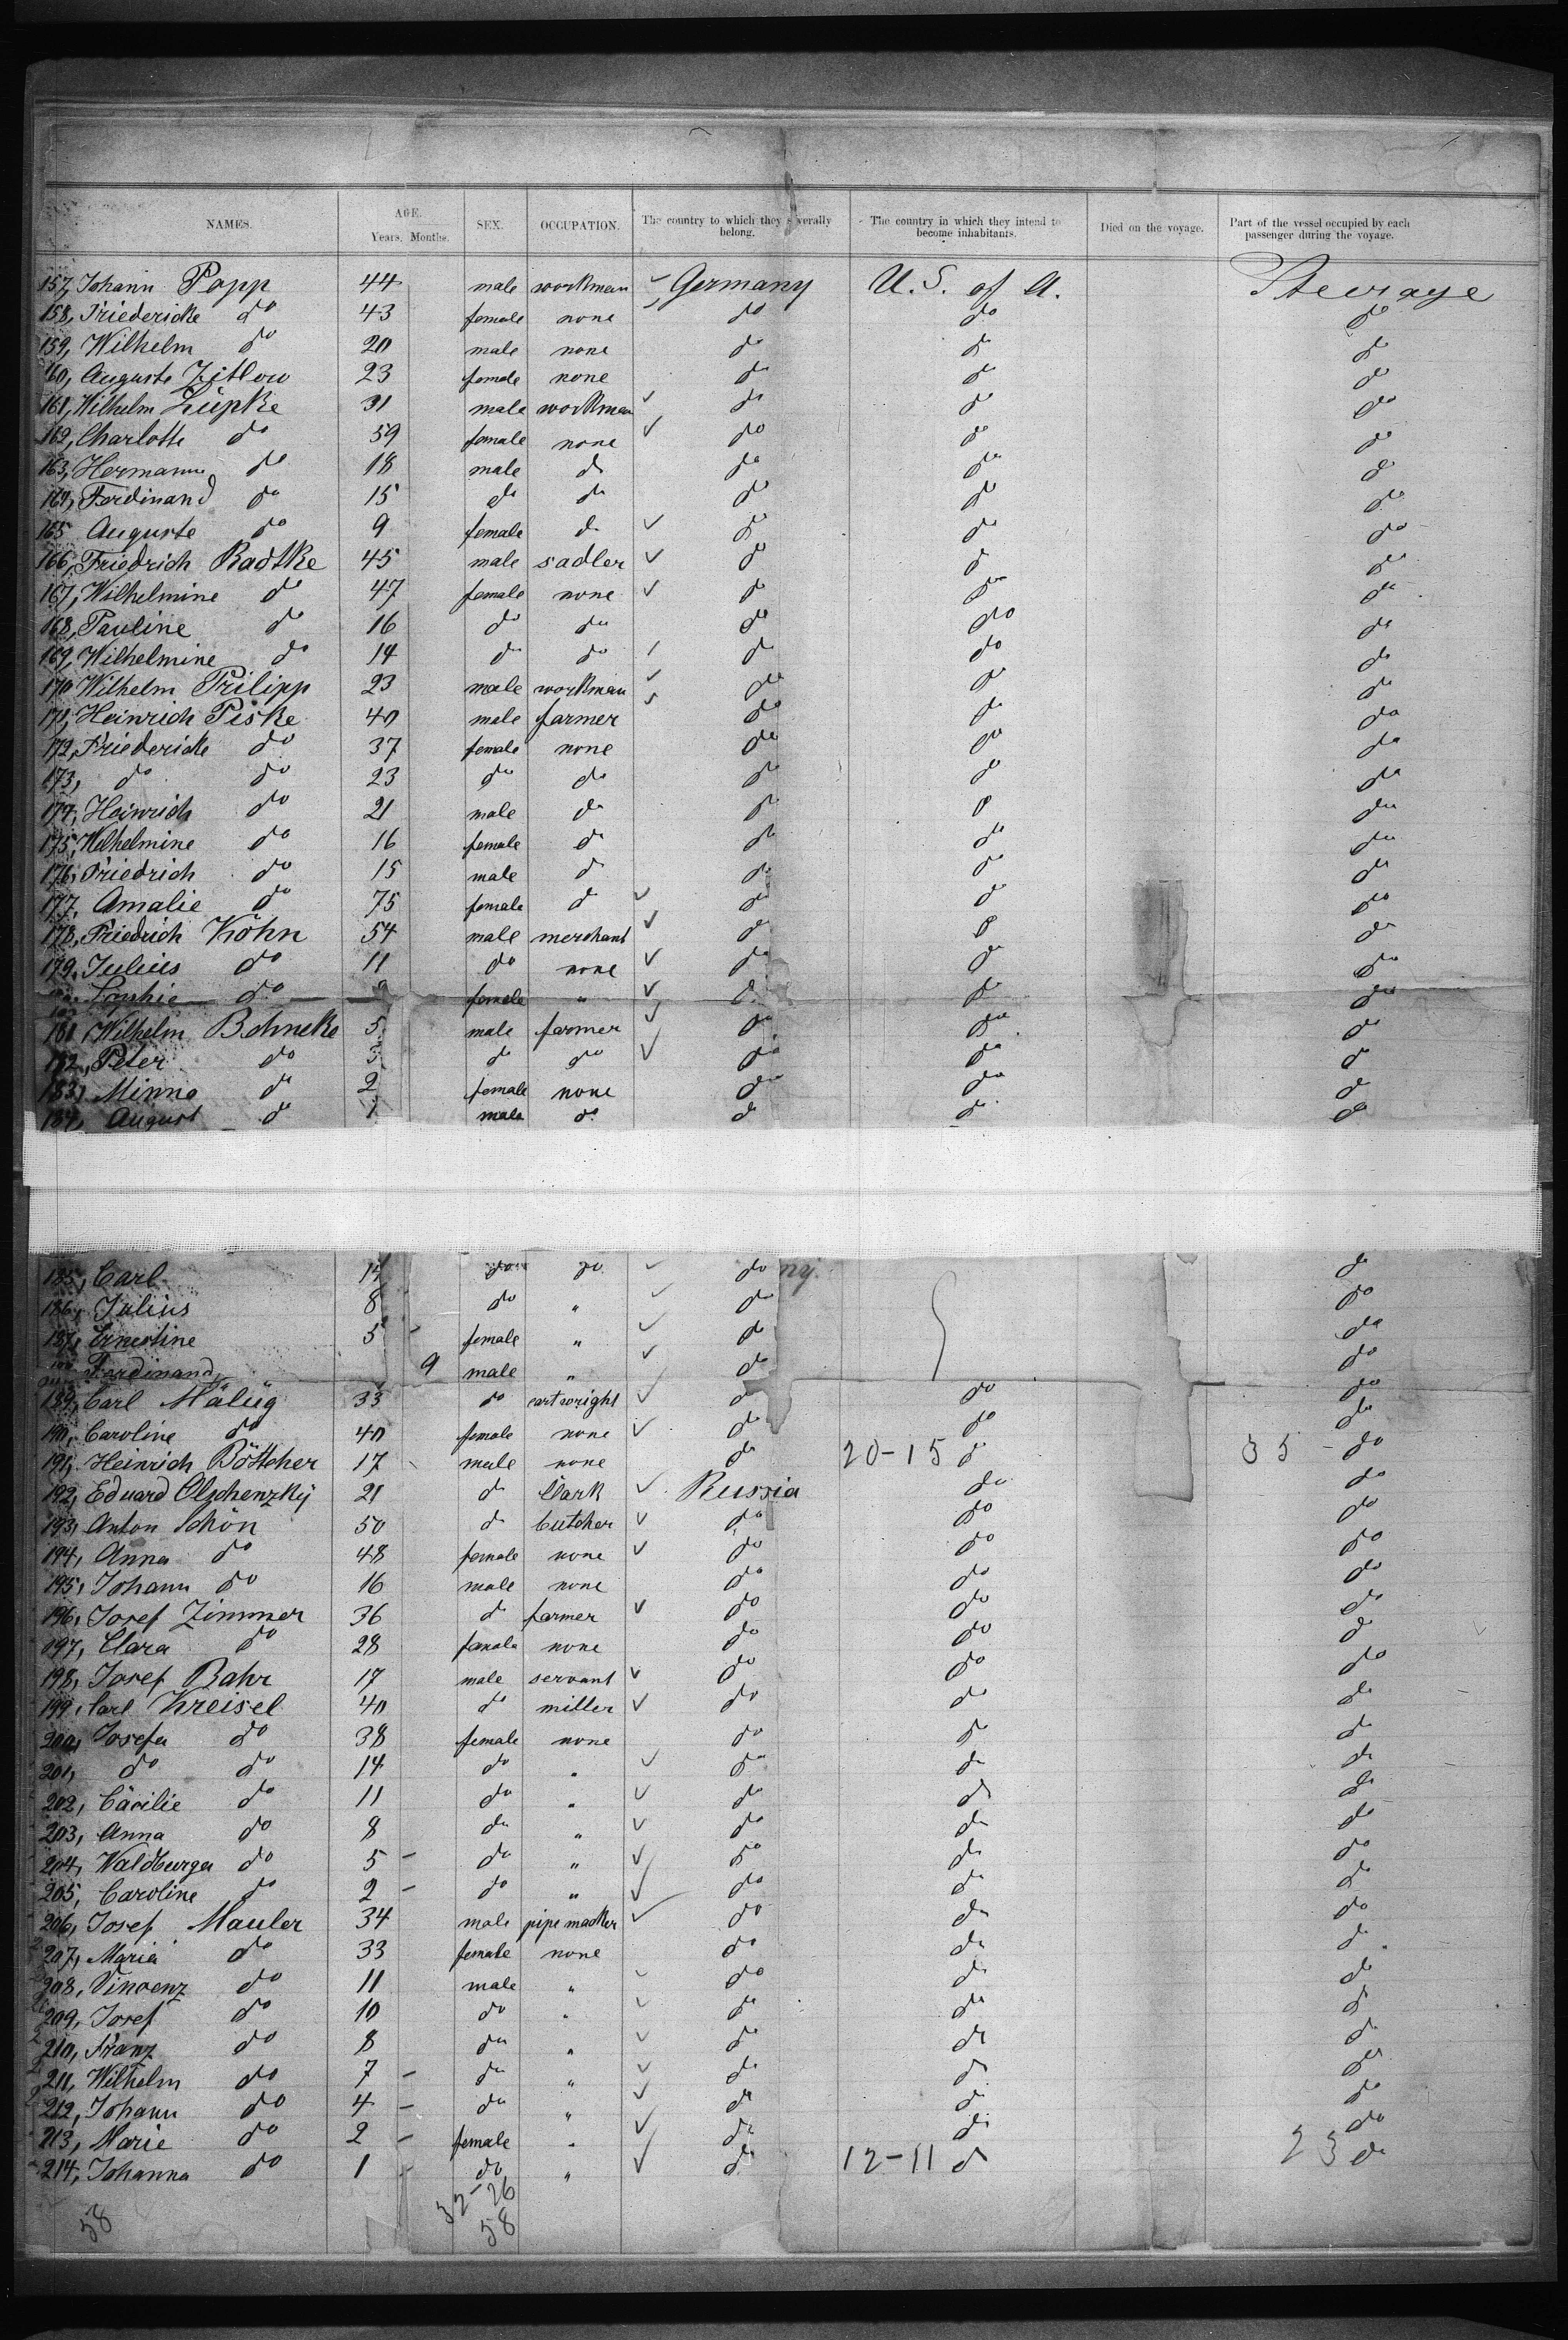 NAMES. AGE. Years. Months. SEX. OCCUPATION. The country to which they severally belong. The country in which they intend to become inhabitants. Died on the voyage. Part of the vessel occupied by each passenger during the voyage.
157, Johann Papp 44 male workman Germany U.S. of A. Steerage
158, Friedericke do 43 female none do do do
159, Wilhelm do 20 male none do do do
160, Auguste Zitlow 23 female none do do do
161, Wilhelm Lüpke 31 male workman do do do
162, Charlotte do 59 female none do do do
163, Hermann do 18 male do do do do
164, Ferdinand do 15 do do do do do
165 Auguste do 9 female do do do do
166, Friedrich Radtke 45 male sadler do do do
167, Wilhelmine do 47 female none do do do
168, Pauline do 16 do do do do do
169, Wilhelmine do 14 do do do do do
170 Wilhelm Prilipp 23 male workman do do do
171, Heinrich Piske 40 male farmer do do do
172, Friedericke do 37 female none do do do
173, do do 23 do do do do do
174, Heinrich do 21 male do do do do
175, Wilhelmine do 16 female do do do do
176, Friedrich do 15 male do do do do
177, Amalie do 75 female do do do do
178, Friedrich Köhn 54 male merchant do do do
179, Julius do 11 do none do do do
Sophie do female " do do do
181, Wilhelm Bohneke 5 male farmer do do do
182, Peter do 3 do do do do do
183, Minna do 2 female none do do do
184, August do 1 male do do do do
185, Carl 14 do do do ny. do
186, Julius 8 do " do do
187, Ernestine 5 - female " do do
Ferdinand 9 male " do do
189, Carl Mälüg 33 do cartwright do do do
190, Caroline do 40 female none do do do
191, Heinrich Böttcher 17 male none do 20-15 do 35 - do
192, Eduard Olschenzkij 21 do Clark Russia do do
193, Anton Schön 50 do butcher do do do
194, Anna do 48 female none do do do
195, Johann do 16 male none do do do
196, Josef Zimmer 36 do farmer do do do
197, Clara do 28 famala none do do do
198, Josef Bahr 17 male servant do do do
199, Carl Kreisel 40 do miller do do do
200, Josefa do 38 female none do do do
201, do do 14 do " do do do
202, Cäcilie do 11 do " do do do
203, Anna do 8 do " do do do
204, Waldburga do 5 - do " do do do
205, Caroline do 2 - do " do do do
206, Josef Mauler 34 male pipe macker do do do
207, Maria do 33 female none do do do
208, Vincenz do 11 male " do do do
209, Josef do 10 do " do do do
210, Franz do 8 do " do do do
211, Wilhelm do 7 - do " do do do
212, Johann do 4 - do " do do do
213, Marie do 2 - female " do do do
214, Johanna do 1 - do " do 12-11 do 23 do
32-26
58 58